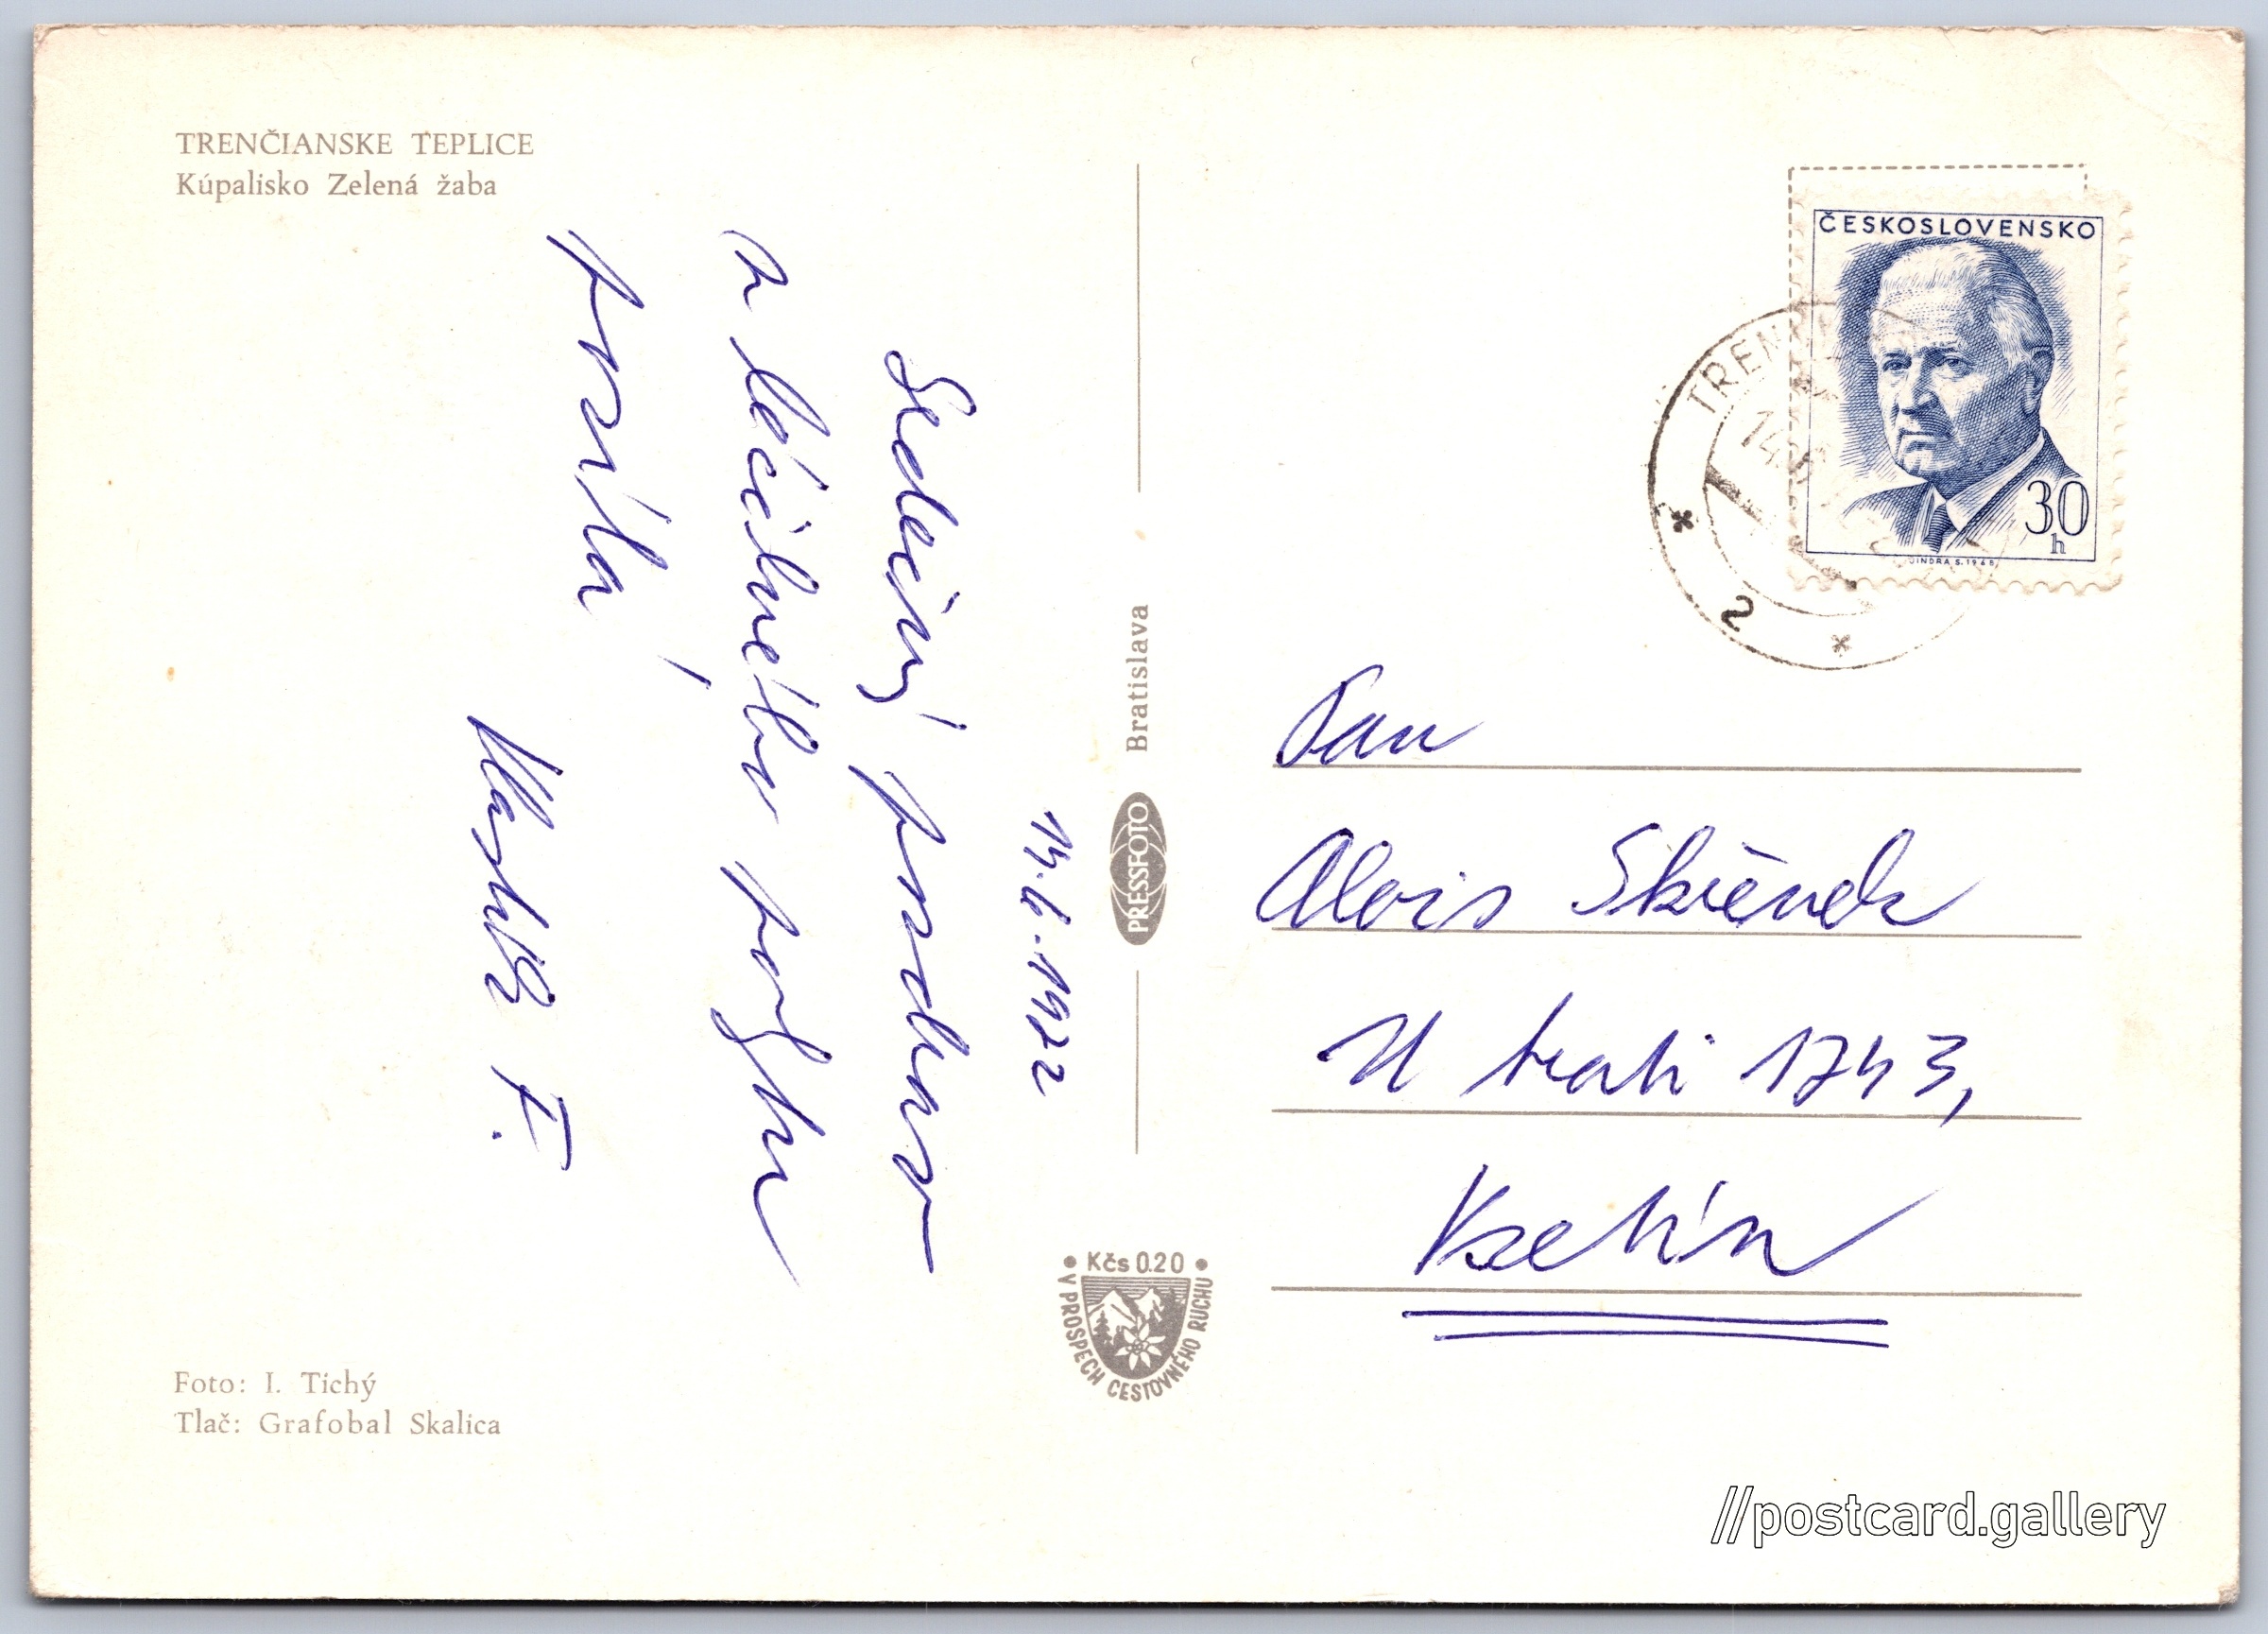 TRENČIANSKE TEPLICE
Kúpalisko Zelená žaba
14.6.1972
Srdečný pozdrav
z léčebného pobytu
posílá
Vlasta F.
Foto: I. Tichý
Tlač: Grafobal Skalica
Bratislava
PRESSFOTO
• Kčs 0.20 •
V PROSPECH CESTOVNÉHO RUCHU
ČESKOSLOVENSKO
30
h
JINDRA S. 1968
TREN
14
2
Pan
Alois
U trati 1743,
Vsetín
//postcard.gallery